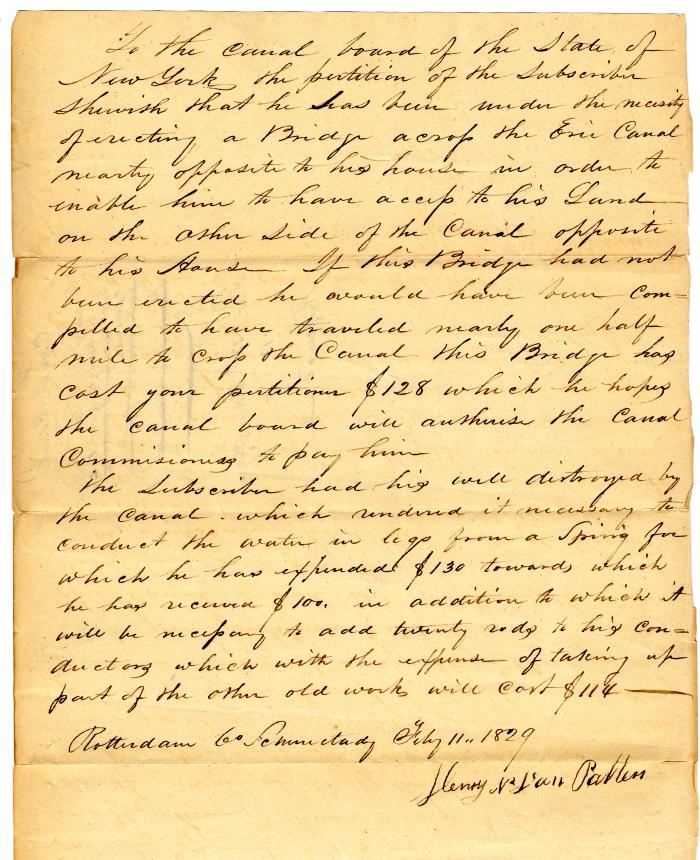 To the canal board of the State of
New York the petition of the Subscriber
Shewith that he has been under the necesity
of erecting a Bridge across the Erie Canal
nearly opposite to his house in order to
enable him to have access to his Land
on the other Side of the Canal opposite
to his House If this Bridge had not
been erected he would have been com=
pelled to have traveled nearly one half
mile to cross the Canal this Bridge has
cost your petitioner $128 which he hopes
the canal board will authorise the Canal
Commisioners to pay him
The Subscriber had his well distroyed by
the Canal. which rendered it necessary to
conduct the water in logs from a Spring for
which he has expended $130 towards which
he has received $100. in addition to which it
will be necessary to add twenty rods to his con=
ductors which with the expense of taking up
part of the other old works will cost $114
Rotterdam Co Schenectady Feby 11.. 1829
Henry N. Van Patten